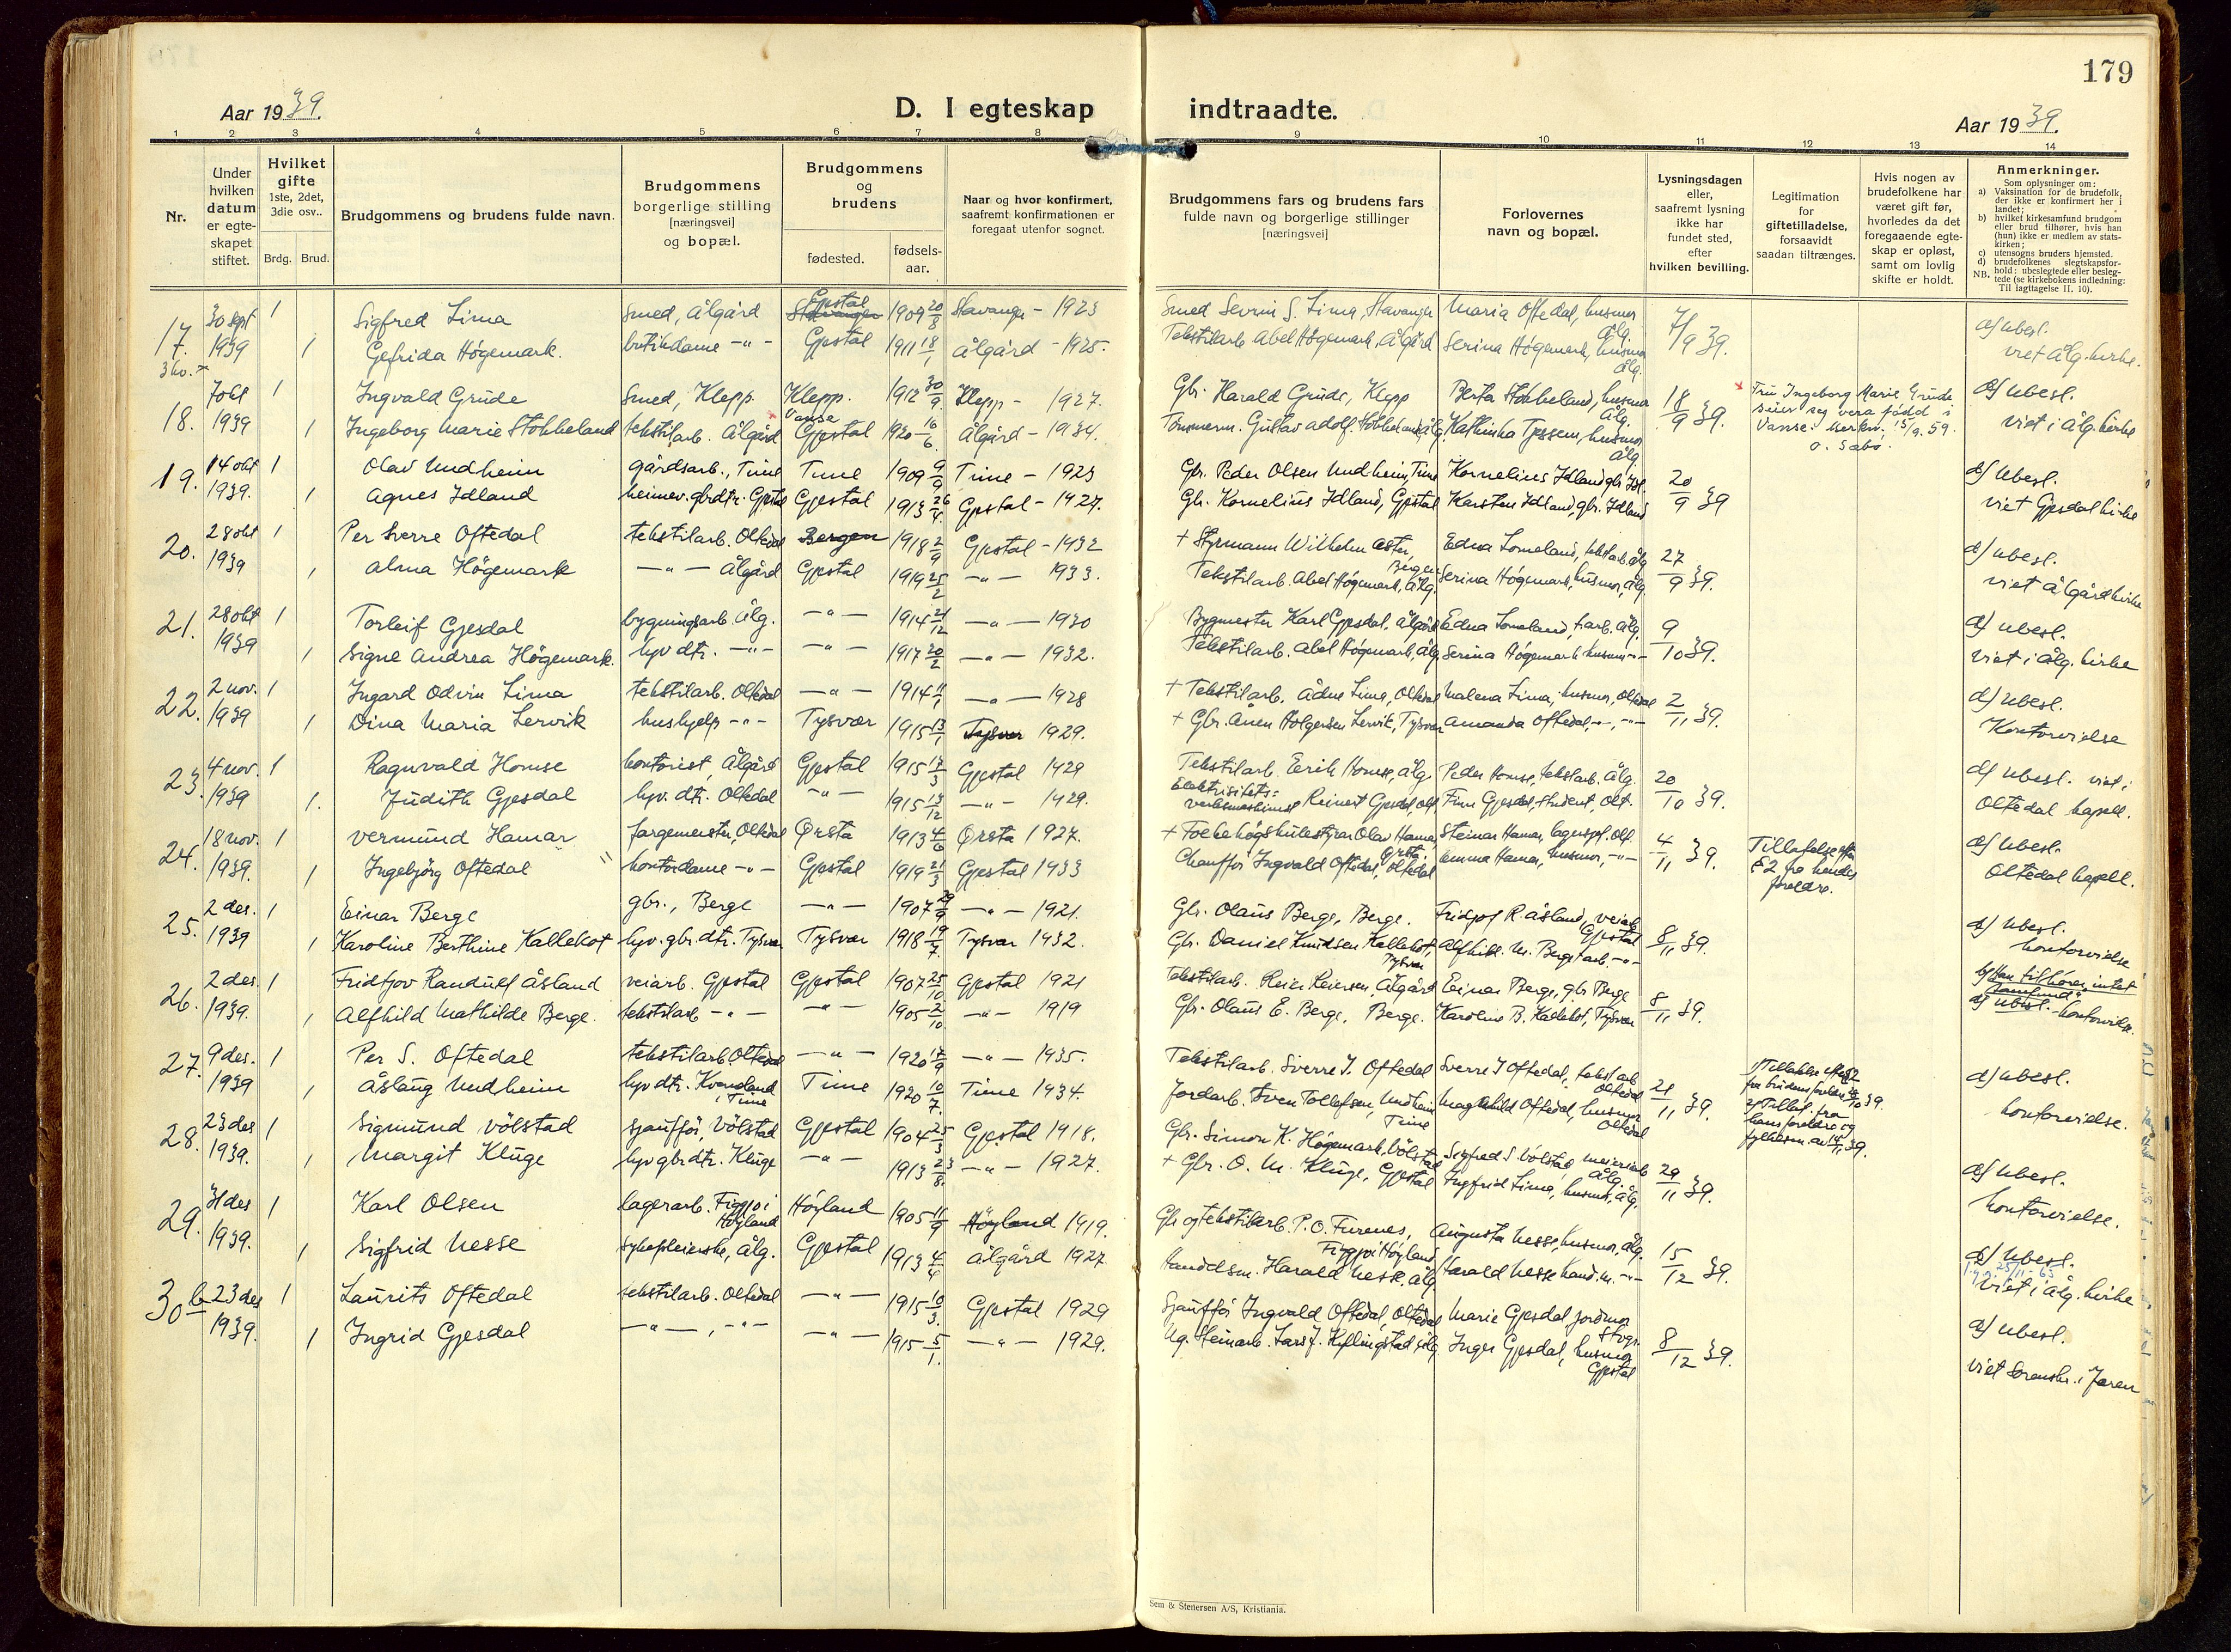 179
Aar 1939.
D. I egteskap indtraadte.
Aar 1939.
1 2 3 4 5 6 7 8 9 10 11 12 13 14
Nr.
Under hvilken datum er egteskapet stiftet.
Hvilket gifte 1ste, 2det, 3die osv..
Brdg. Brud.
Brudgommens og brudens fulde navn.
Brudgommens borgerlige stilling [næringsvei] og bopæl.
Brudgommens og brudens
fødested.
fødsels-aar.
Naar og hvor konfirmert, saafremt konfirmationen er foregaat utenfor sognet.
Brudgommens fars og brudens fars fulde navn og borgerlige stillinger [næringsvei]
Forlovernes navn og bopæl.
Lysningsdagen eller, saafremt lysning ikke har fundet sted, efter hvilken bevilling.
Legitimation for giftetilladelse, forsaavidt saadan tiltrænges.
Hvis nogen av brudefolkene har været gift før, hvorledes da det foregaaende egteskap er opløst, samt om lovlig skifte er holdt.
Anmerkninger.
Som oplysninger om:
a) Vaksination for de brudefolk, der ikke er konfirmert her i landet;
b) hvilket kirkesamfund brudgom eller brud tilhører, hvis han (hun) ikke er medlem av statskirken;
c) utensogns bruders hjemsted.
d) brudefolkenes slegtskapsforhold: ubeslegtede eller beslegtede (se kirkebokens indledning: Til iagttagelse II. 10).
NB.
17. 30 sept 1939 1 Sigfred Lima smed, Ålgård Stavanger Gjestal 1909 20/8 Stavanger - 1923 Smed Sevrin S. Lima, Stavanger Maria Oftedal, husmor Ålg. 7/9 39. d) ubesl.
1 Gefrida Høgemark. butikdame -"- Gjestal 1911 18/1 Ålgård - 1925. Tekstilarb. Abel Høgemark, Ålgård Serina Høgemark, husmor Ålg. viet Ålg. kirke.
18. 7 okt 1939 1 Ingvald Grude Smed, Klepp. Klepp. 1912 30/9 Klepp - 1927. Gbr. Harald Grude, Klepp Berta Stokkeland, husmor Ålg. 18/9 39. Fru Ingeborg Marie Grude seier seg vera fødd i Vanse. Merkn. 15/9.59. O. Sabø. d) ubesl.
1 Ingeborg Marie Stokkeland tekstilarb. Ålgård Vanse Gjestal 1920 16/6 Ålgård - 1934. Tømmerm. Gustav Adolf Stokkeland, Ålg. Kathinka Tjessem, husmor Ålg viet i Ålg. kirke
19. 14 okt 1939. 1 Olav Undheim gårdsarb., Time Time 1909 9/9 Time - 1923 Gbr. Peder Olsen Undheim, Time Kornelius Idland gbr. Idl. 20/9 39 d) ubesl.
1 Agnes Idland heimev. gbrdtr. Gjestal Gjestal 1913 26/4. Gjestal - 1927. Gbr. Kornelius Idland, Gjestal Karsten Idland, gbr. Idland viet Gjesdal kirke
20. 28 okt 1939 1 Per Sverre Oftedal tekstilarb. Oltedal Bergen 1918 2/9 Gjestal - 1932 + Styrmann Wilhelm Aster, Bergen Edna Lomeland, tekstarb. Ålg 27/9 39. d) ubesl.
1 Alma Høgemark -"- Ålgård Gjestal 1919 25/2 -"- 1933. Tekstilarb. Abel Høgemark, Ålg. Serina Høgemark, husmor, Ålg. viet Ålgård kirke
21. 28 okt 1939 1 Torleif Gjesdal bygningsarb. Ålg. -"- 1914 21/12 -"- 1930 Bygmester Karl Gjesdal, Ålgård Edna Lomeland, t.arb. Ålg. 9/10 39. d) ubesl.
1 Signe Andrea Høgemark. hjv dtr. -"- -"- 1917 20/2 -"- 1932. Tekstilarb. Abel Høgemark, Ålg. Serina Høgemark husmor -"- viet i Ålg. kirke
22. 2 nov. 1939 1 Ingard Odvin Lima tekstilarb. Oltedal -"- 1914 11/1 -"- 1928 + Tekstilarb. Ådne Lima, Oltedal Malena Lima, husmor, Oltedal 2/11 39. d) ubesl.
1 Dina Maria Lervik hushjelp -"- Tysvær 1915 13/1 Tysvær 1929. + Gbr. Anen Holgersen Lervik, Tysvær Amanda Oftedal, -"-, -"- Kontorvielse
23. 4 nov. 1939 1 Ragnvald Homse kontorist, Ålgård Gjestal 1915 17/3 Gjestal 1929 Tekstilarb. Eirik Homse, Ålg. Peder Homse, tekstarb. Ålg. 20/10 39. d) ubesl. viet i
1. Judith Gjesdal hjv. dtr. Oltedal -"- 1915 17/12 -"- 1929. Elektrisitets-verksmaskinist Reinert Gjesdal, Olt. Finn Gjesdal, student, Olt. Oltedal kapell.
24. 18 nov. 1939. 1 Vermund Hamar fargemester, Oltedal Ørsta 1913 4/6 Ørsta 1927. + Folkehøgskulestyrar Olav Hamar, Ørsta. Steinar Hamar, lagerspl. Olt. 4/11 39. Tillatelse etter § 2 fra hendes foreldre. d) ubesl.
1 Ingebjørg Oftedal kontordame -"- Gjestal 1919 21/3 Gjestal 1933 Chauffør Ingvald Oftedal, Oltedal Emma Hamar, husmor, -"- Oltedal kapell.
25. 2 des. 1939 1 Einar Berge gbr., Berge -"- 1907 29/9 -"- 1921. Gbr. Olaus Berge, Berge. Fridtjof R. Åsland, veiarb. Gjestal 8/11 39. d) ubesl.
1 Karoline Berthine Kallekot hjv. gbr. dtr. Tysvær Tysvær 1918 19/7. Tysvær 1932. Gbr. Daniel Knudsen Kallekot, Tysvær Alfhild M. Berge t.arb. -"- kontorvielse
26. 2 des. 1939. 1 Fridtjov Randulf Åsland veiarb. Gjestal Gjestal 1907 25/10 Gjestal 1921 Tekstilarb. Reier Reiersen, Ålgård Einar Berge, gbr Berge 8/11 39. b) Han tilhører intet samfund.
1 Alfhild Mathilde Berge. tekstilarb -"- -"- 1905 /10 -"- 1919 Gbr. Olaus E. Berge, Berge. Karoline B. Kallekot, Tysvær d) ubesl. kontorvielse.
27. 9 des. 1939 1 Per S. Oftedal tekstilarb. Oltedal -"- 1920 17/9 -"- 1935. Tekstilarb. Sverre J. Oftedal Sverre J Oftedal, tekstarb. Oltedal 21/11 39. 1) Tillatelse etter § 2 fra brudens foreldre 39. 2) Tillat. fra hans foreldre og 39. d) ubesl.
1 Åslaug Undheim hjv dtr. Kvandand, Time Time 1920 10/7. Time 1934. Jordarb. Sven Tollefsen, Undheim Time Magnhild Oftedal, husmor Oltedal kontorvielse.
28. 23 des 1939. 1 Sigmund Vølstad sjauffør, Vølstad Gjestal 1904 25/3 Gjestal 1918. Gbr. Simon K. Høgemark, Vølstad Sigfred S. Vølstad, meieriarb Ålg. 29/11 39. d) ubesl.
1 Margit Kluge hjv gbr dtr. Kluge -"- 1913 23/8 -"- 1927. + Gbr. O. M. Kluge, Gjestal Ingfrid Lima, husmor, Ålg. kontorvielse.
29. 31 des 1939. 1 Karl Olsen lagerarb. Figgjo i Høyland Høyland 1905 11/9 Høyland 1919. Gbr og tekstilarb. P. O. Furenes, Figgjo i Høyland Augusta Nesse, husmor, Ålg. 15/12 39. d) ubesl.
1 Sigfrid Nesse sykepleierske, Ålg. Gjestal 1913 4/4 Ålgård 1927. Handelsm. Harald Nesse, Ålg. Harald Nesse hand.m. -"- viet i Ålg. kirke
30 b 23 des 1939. 1 Laurits Oftedal tekstilarb. Oltedal -"- 1915 10/3. Gjestal 1929 Sjauffør Ingvald Oftedal, Oltedal Marie Gjesdal jordmor 8/12 39. d) ubesl.
1 Ingrid Gjesdal -"-, -"- -"- 1915 5/1. -"- 1929. Ug. steinarb. Lars J. Kyllingstad, Ålg. Inger Gjesdal, husmor Gjestal viet Sorenskr. i Jæren
Sem & Stenersen A/S, Kristiania.